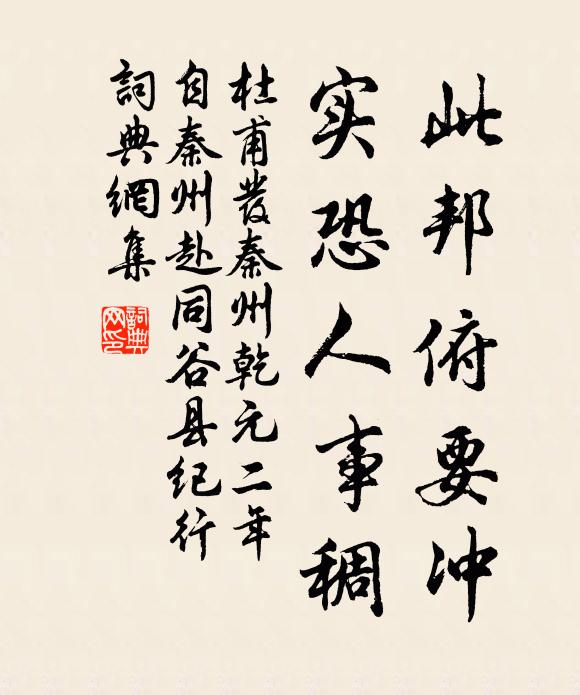 此邦俯要冲
实恐人事稠
杜甫發秦州乾元二年
自秦州赴同谷县纪行
詞典網集
詞典
网印